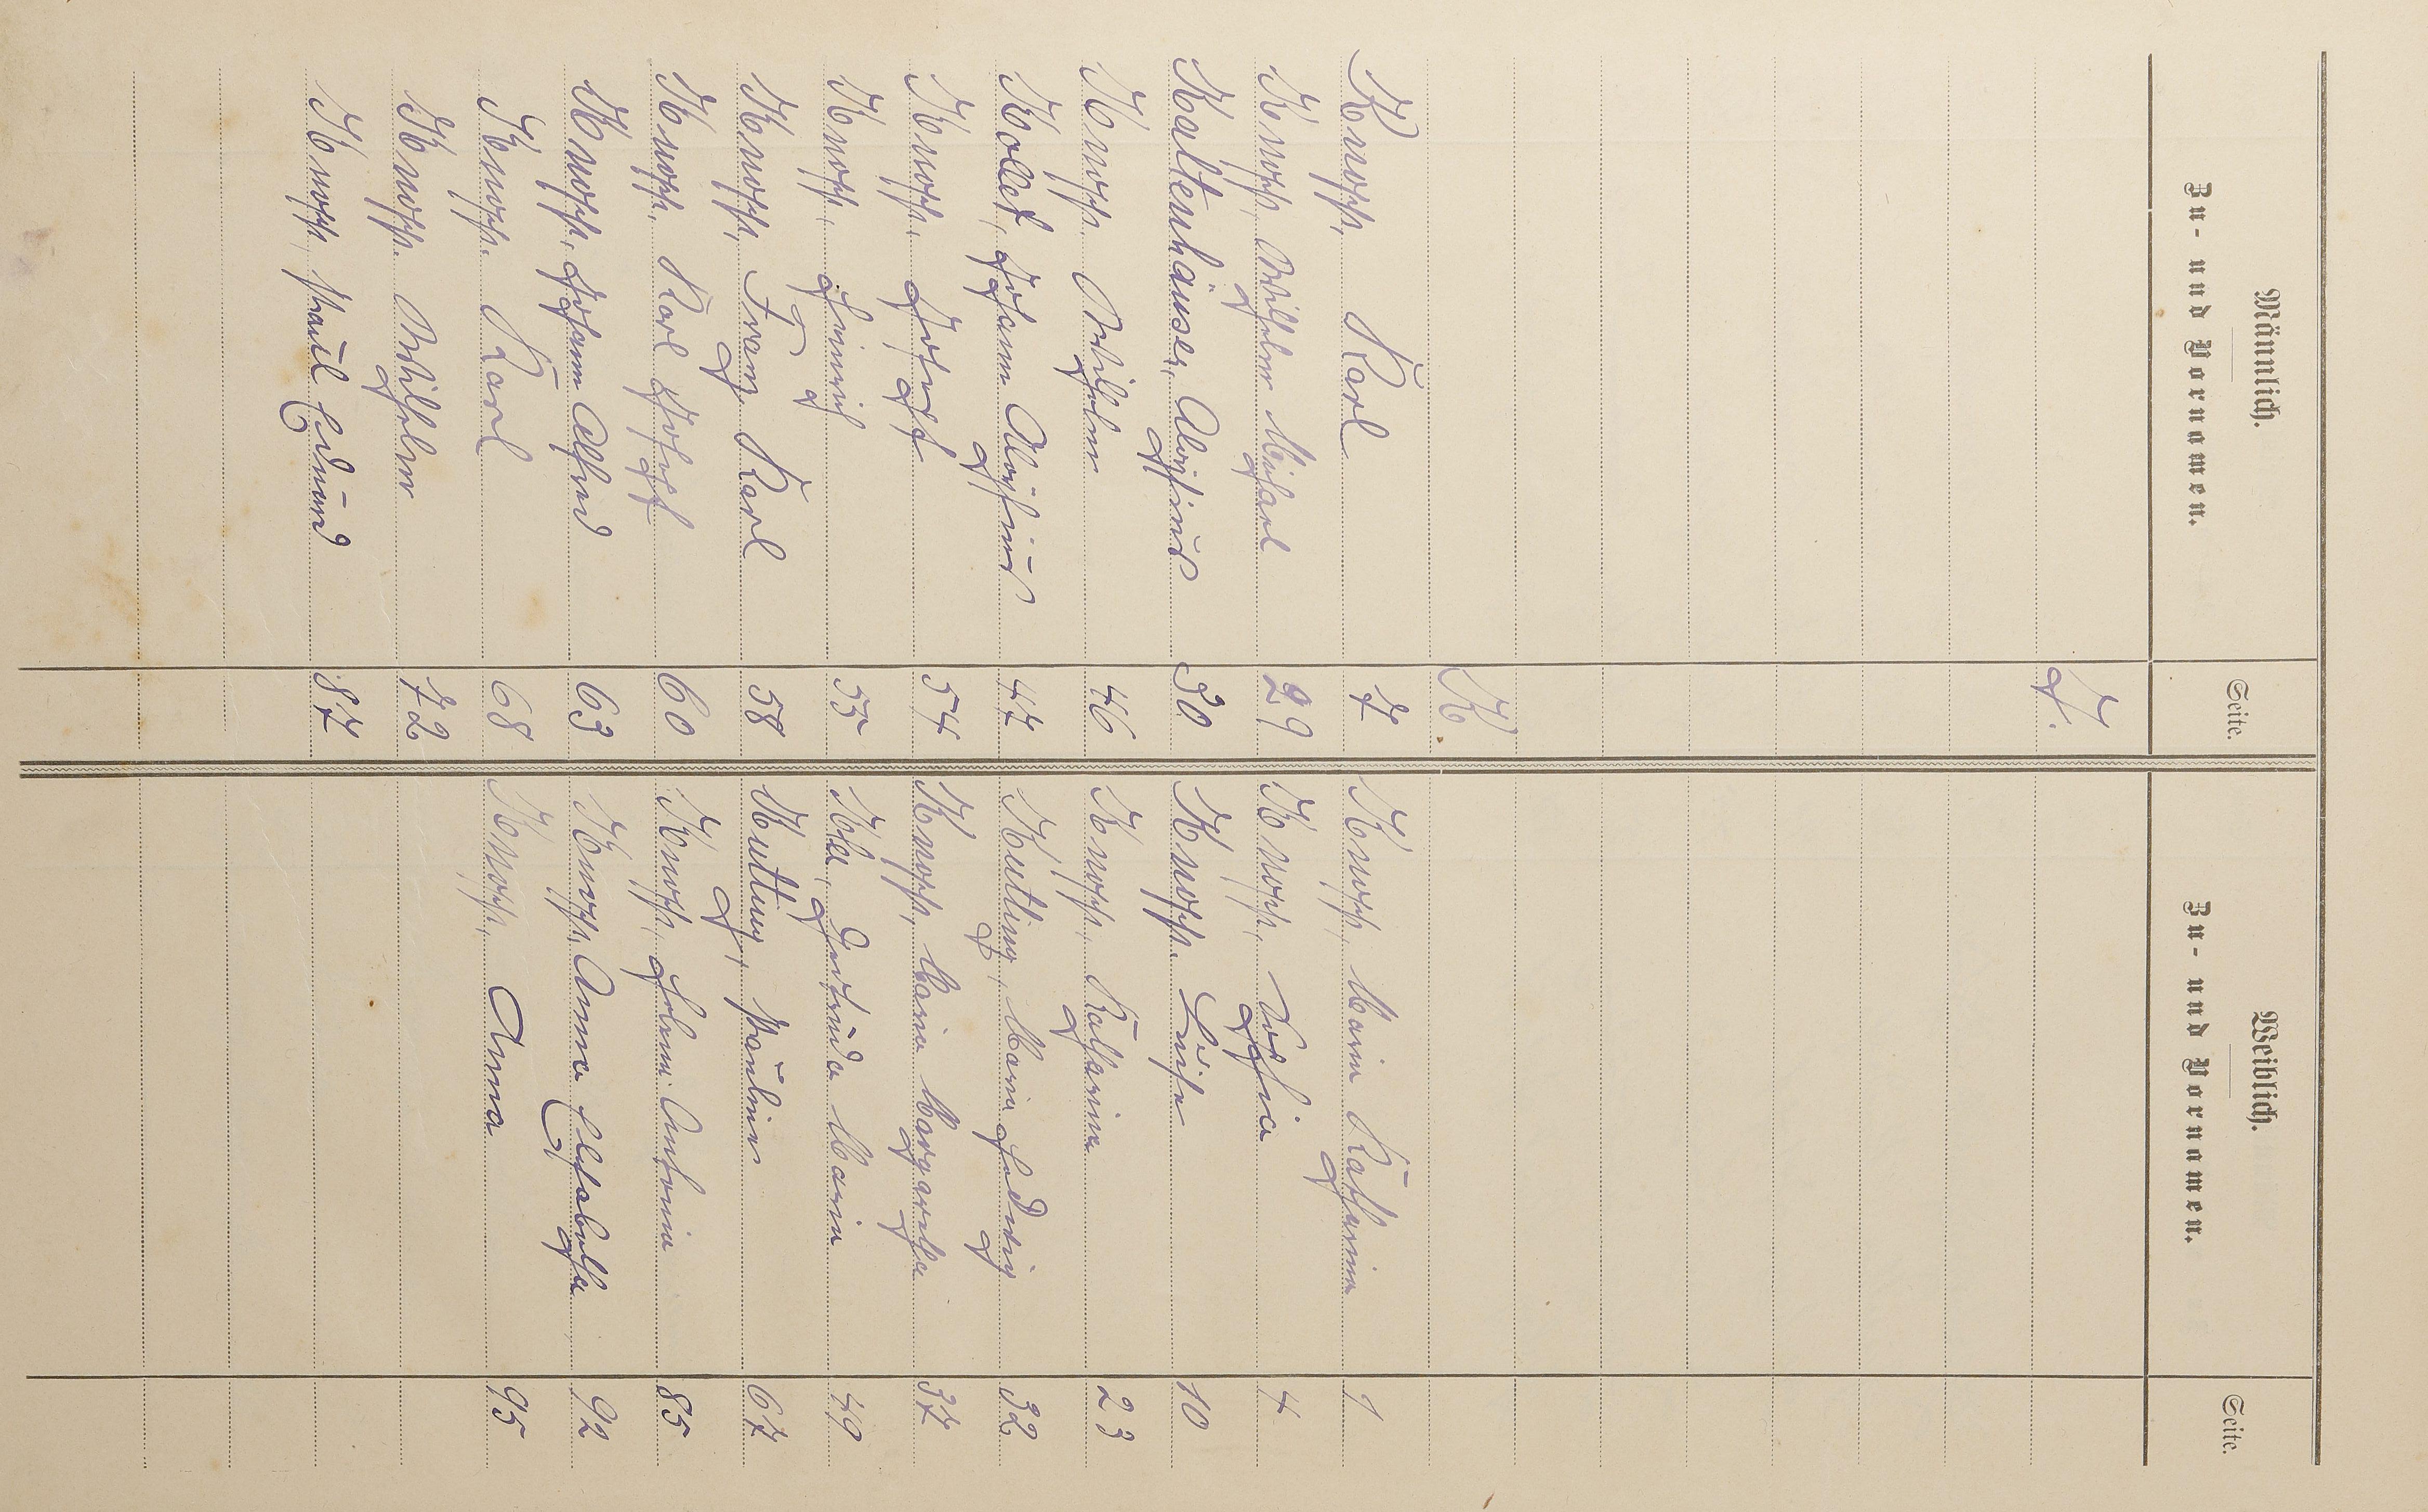 Männlich. Weiblich.
Zu- und Vornamen. Seite. Zu- und Vornamen. Seite.
J.
K.
Knopp, Karl 7 Knopp, Maria Katharina 1
Knopp, Wilhelm Michael 29 Knopp, Sophia 4
Kaltenhäuser, Aloysius 30 Knopp, Luise 10
Knopp, Wilhelm 46 Knopp, Katharina 23
Kollet, Johann Aloysius 47 Kutting, Maria Hedwig 32
Knopp, Josef 54 Knopp, Maria Margaretha 37
Knopp, Heinrich 55 Gertruda Maria 49
Knopp, Franz Karl 58 Kutting, Pauline 67
Knopp, Karl Josef 60 Knopp, Helena Antonia 85
Knopp, Johann Alfred 63 Knopp, Anna Elisabetha 92
Knopp, Karl 68 Knopp, Anna 95
Knopp, Wilhelm 72
Knopp, Paul Edmund 87